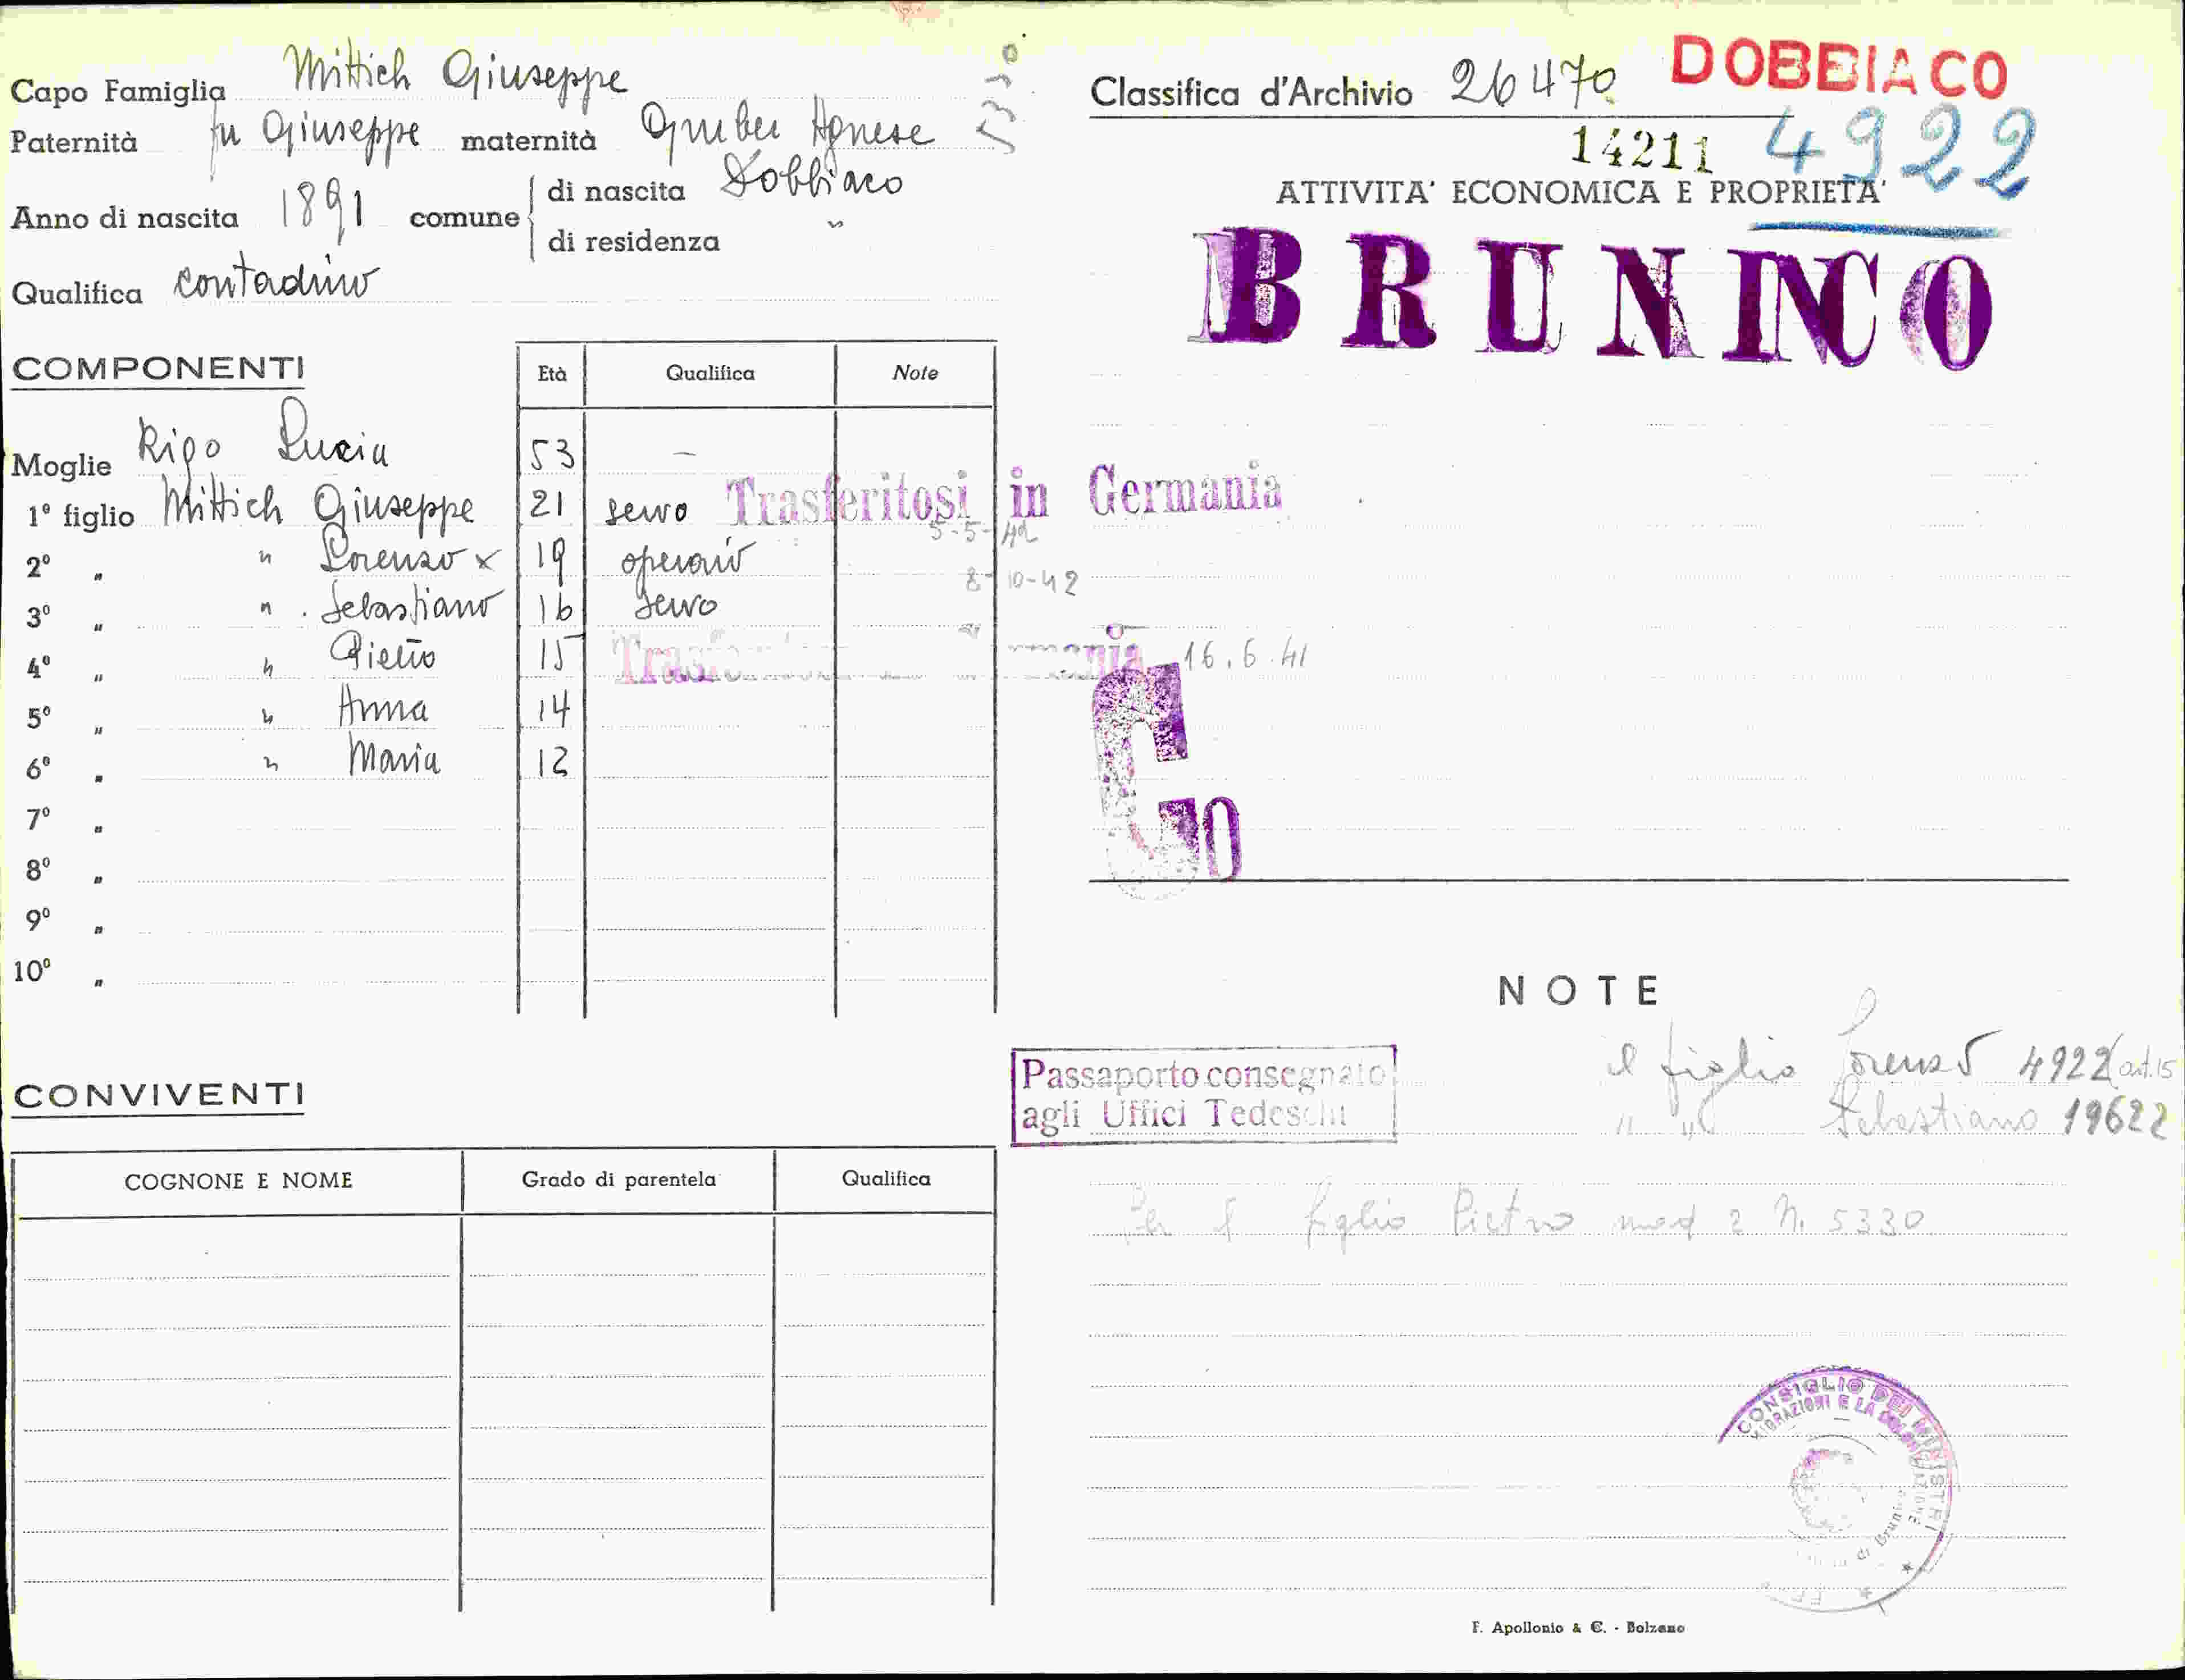 Capo Famiglia Mittich Giuseppe
Paternità fu Giuseppe maternità Gruber Agnese
Anno di nascita 1891 comune di nascita Dobbiaco
di residenza "
Qualifica contadino
COMPONENTI Età Qualifica Note
Moglie Rigo Lucia 53 —
1º figlio Mittich Giuseppe 21 servo Trasferitosi in Germania
5-5-42
2º " " Lorenzo x 19 operaio
8-10-42
3º " " Sebastiano 16 servo
4º " " Pietro 15 16.6.41
5º " " Anna 14
6º " " Maria 12
7º "
8º "
9º "
10º "
CONVIVENTI
COGNONE E NOME Grado di parentela Qualifica
Classifica d'Archivio 26470 DOBBIACO
14211 4922
ATTIVITA' ECONOMICA E PROPRIETA'
BRUNICO
G
NOTE
Passaporto consegnato
agli Uffici Tedeschi
il figlio Lorenzo 4922 (art.15
" " Sebastiano 19622
Per il figlio Pietro mod 2 N. 5330
CONSIGLIO DEI MINISTRI
MIGRAZIONI E LA
di Brunico
F. Apollonio & C. - Bolzano